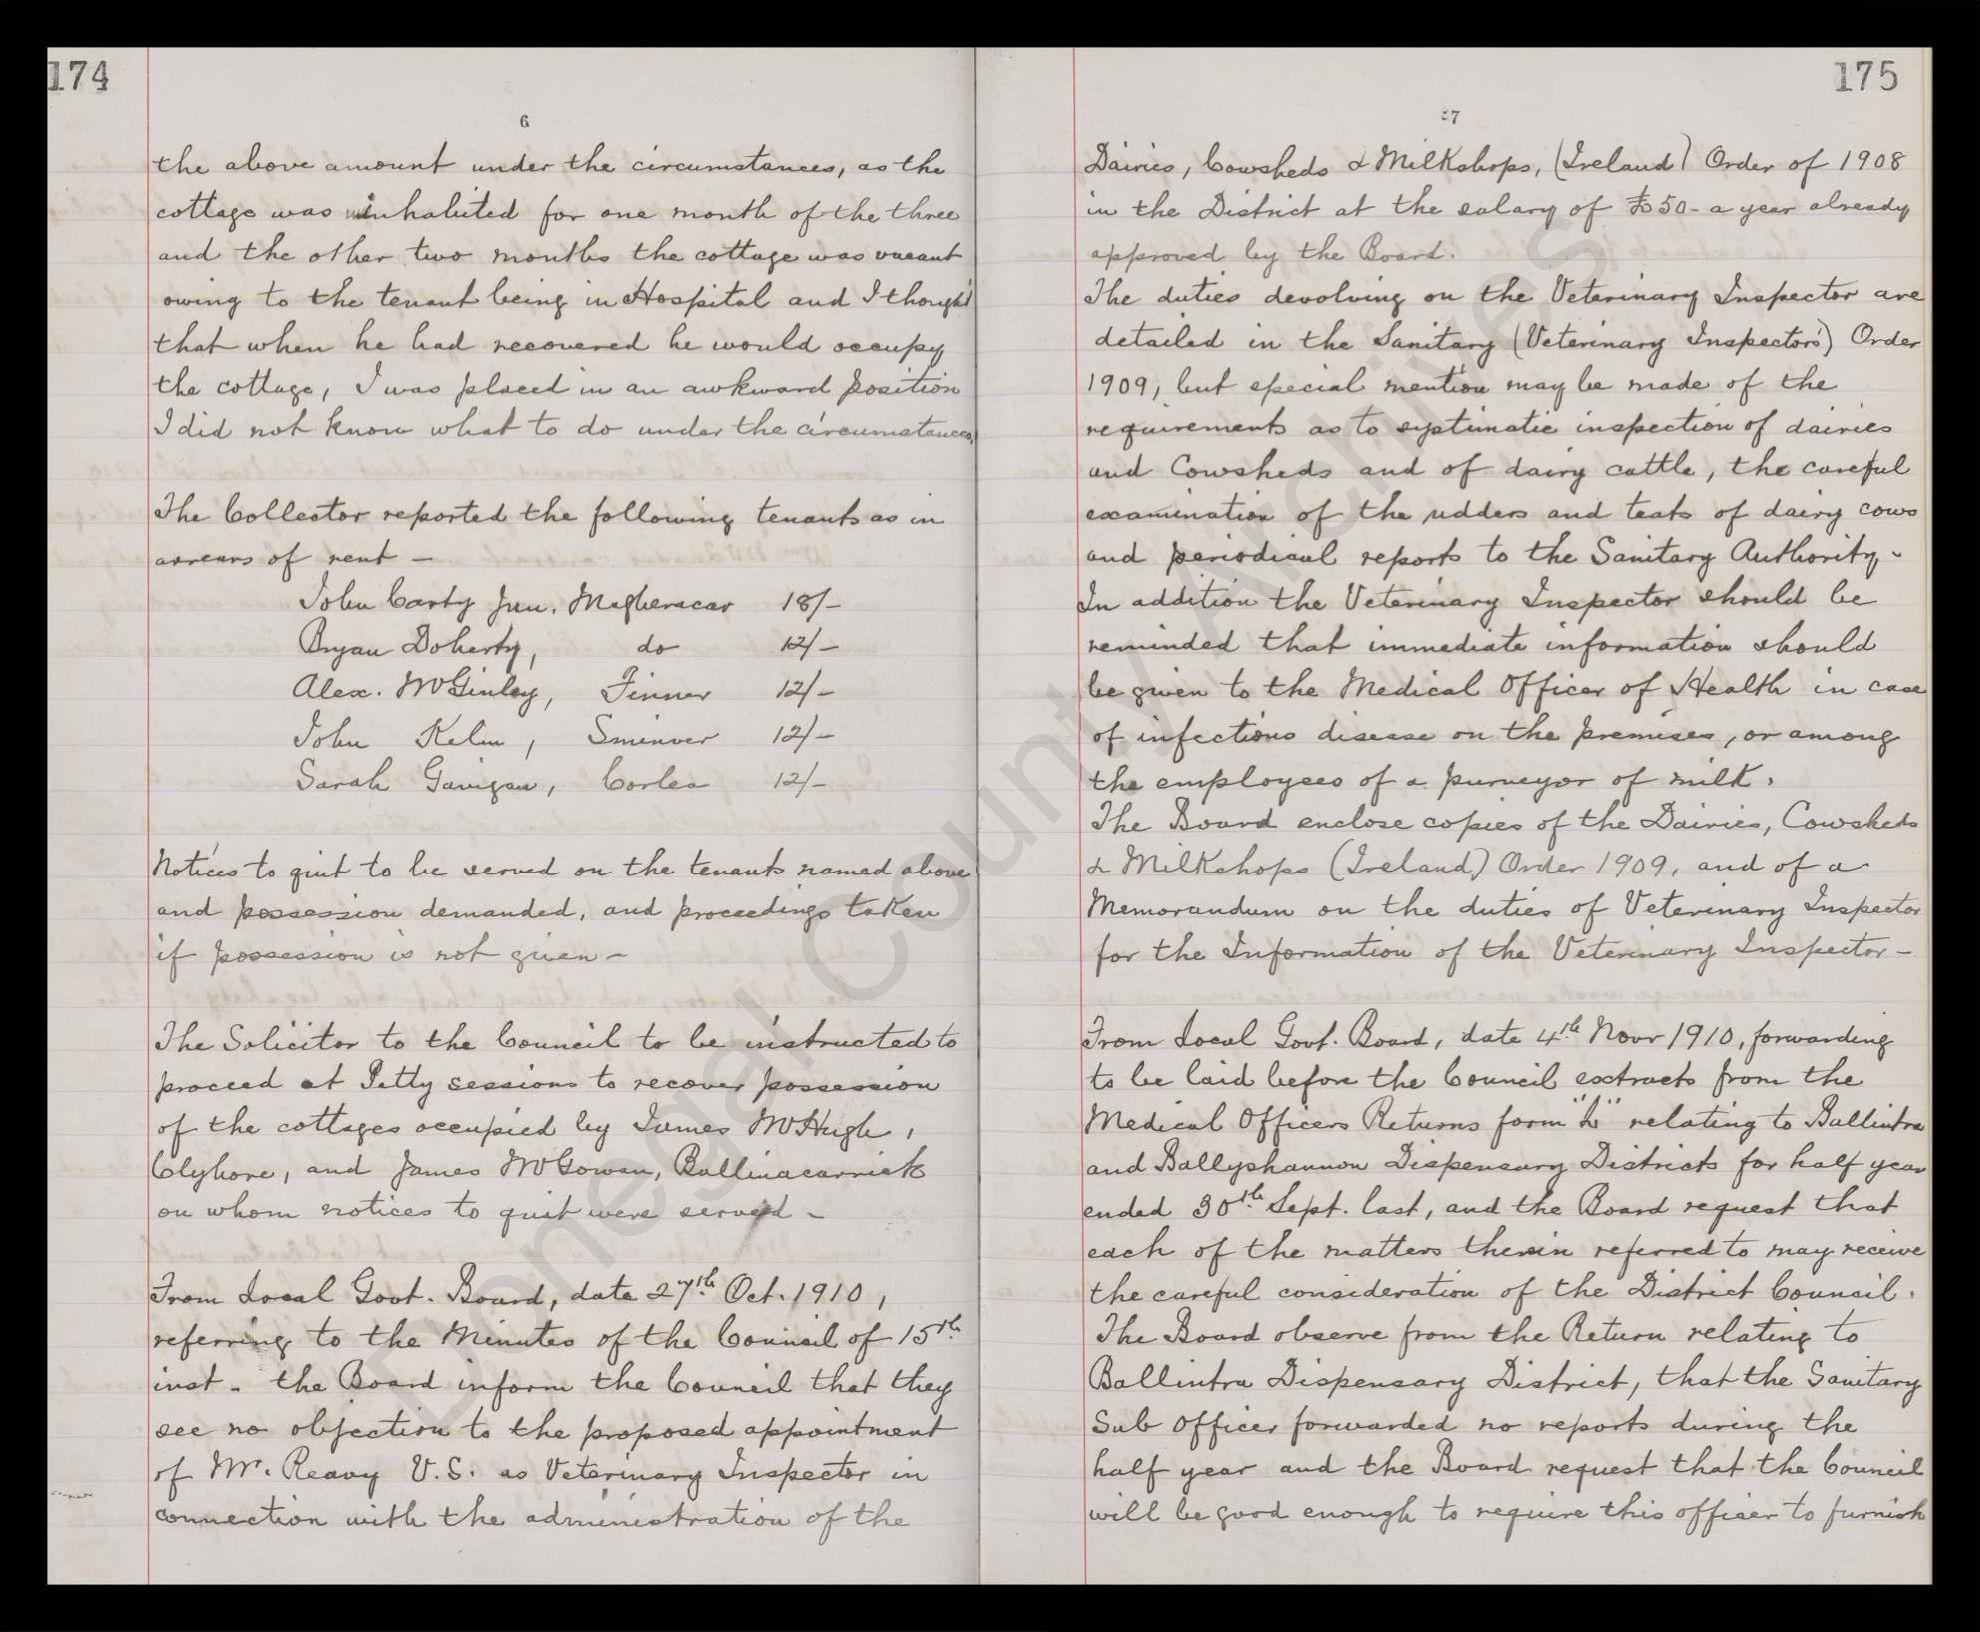 174
6
the above amount under the circumstances, as the
cottage was inhabited for one month of the three
and the other two months the cottage was vacant
owing to the tenant being in Hospital and I thought
that when he had recovered he would occupy
the cottage, I was placed in an awkward position
I did not know what to do under the circumstances,
The Collector reported the following tenants as in
arrears of rent —
John Carty Jun. Magheracar 18/-
Bryan Doherty, do 12/-
Alex. McGinley, Finner 12/-
John Kelm, Sminver 12/-
Sarah Gavigan, Corlea 12/-
Notices to quit to be served on the tenants named above
and possession demanded, and proceedings taken
if possession is not given —
The Solicitor to the Council to be instructed to
proceed at Petty sessions to recover possession
of the cottages occupied by James McHugh,
Clyhore, and James McGowan, Ballinacarrick
on whom notices to quit were served —
From Local Govt. Board, date 27th Oct. 1910,
referring to the Minutes of the Council of 15th
inst - the Board inform the Council that they
see no objection to the proposed appointment
of Mr. Reavy V.S. as Veterinary Inspector in
connection with the administration of the
175
7
Dairies, Cowsheds & Milkshops, (Ireland) Order of 1908
in the District at the salary of £50- a year already
approved by the Board.
The duties devolving on the Veterinary Inspector are
detailed in the Sanitary (Veterinary Inspectors') Order
1909, but special mention may be made of the
requirements as to systimatic inspection of dairies
and Cowsheds and of dairy cattle, the careful
examination of the udders and teats of dairy cows
and periodical reports to the Sanitary Authority -
In addition the Veterinary Inspector should be
reminded that immediate information should
be given to the Medical Officer of Health in case
of infectious disease on the premises, or among
the employees of a purveyor of milk.
The Board enclose copies of the Dairies, Cowsheds
& Milkshops (Ireland) Order 1909, and of a
Memorandum on the duties of Veterinary Inspector
for the Information of the Veterinary Inspector —
From Local Govt. Board, date 4th Novr 1910, forwarding
to be laid before the Council extracts from the
Medical Officers Returns form "L" relating to Ballintra
and Ballyshannon Dispensary Districts for half year
ended 30th Sept. last, and the Board request that
each of the matters therein referred to may receive
the careful consideration of the District Council.
The Board observe from the Return relating to
Ballintra Dispensary District, that the Sanitary
Sub Officer forwarded no reports during the
half year and the Board request that the Council
will be good enough to require this officer to furnish
Donegal County Archives